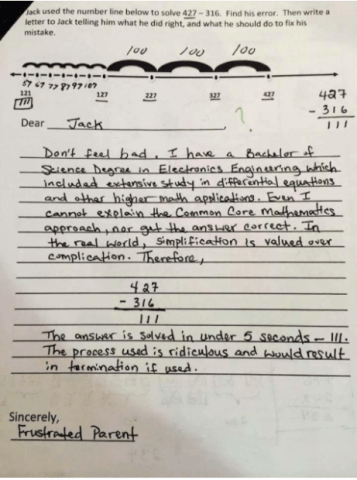 Jack used the number line below to solve 427 – 316. Find his error. Then write a
letter to Jack telling him what he did right, and what he should do to fix his
mistake.
100 100 100
57 67 77 87 97 107
121 127 227 327 427
427
- 316
111
?
Dear Jack
Don't feel bad. I have a Bachelor of
Science Degree in Electronics Engineering which
included extensive study in differential equations
and other higher math applications. Even I
cannot explain the Common Core Mathematics
approach, nor get the answer correct. In
the real world, simplification is valued over
complication. Therefore,
427
- 316
111
The answer is solved in under 5 seconds – 111.
The process used is ridiculous and would result
in termination if used.
Sincerely,
Frustrated Parent